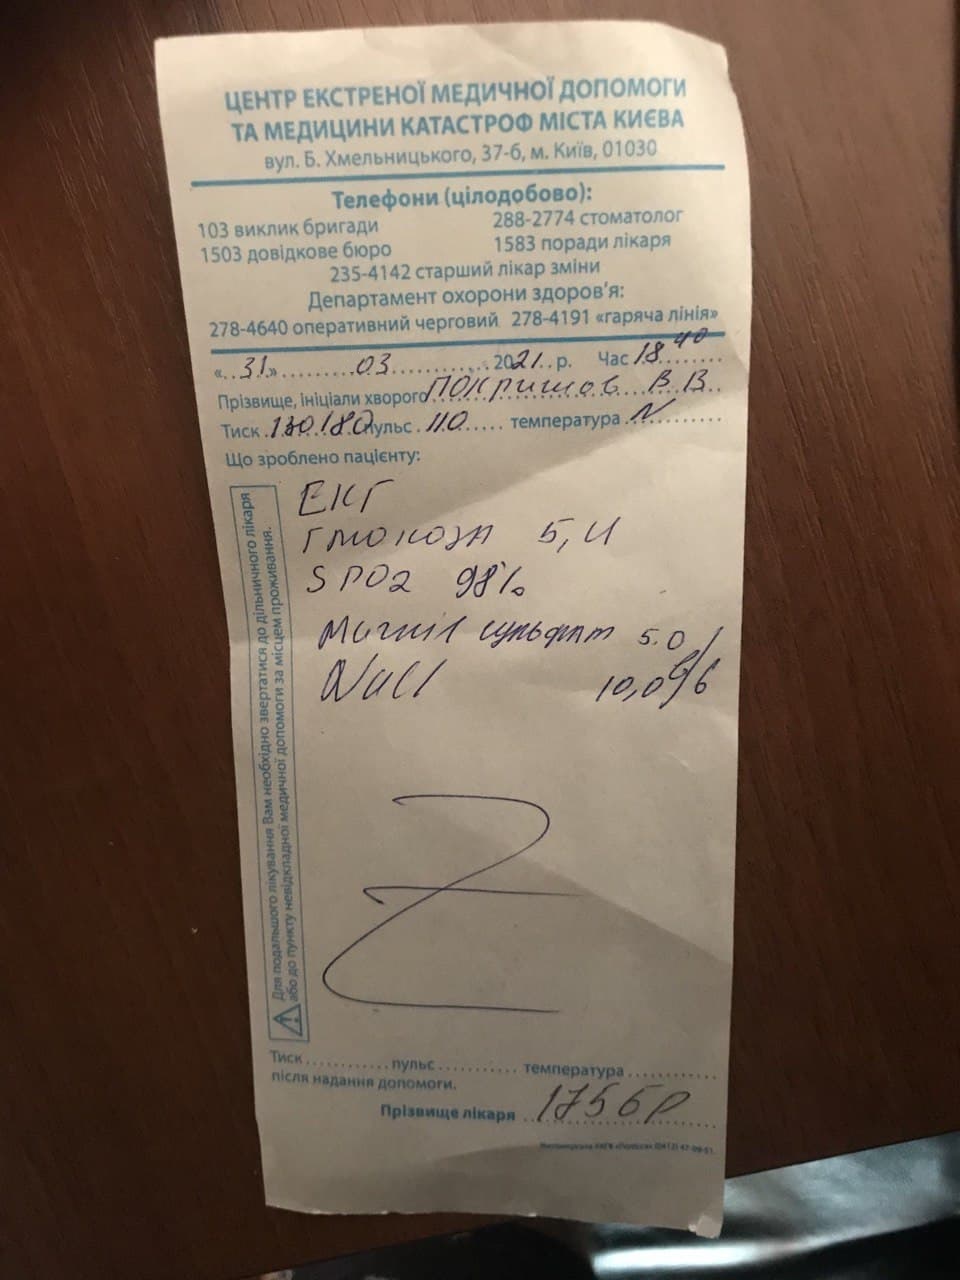 ЦЕНТР ЕКСТРЕНОЇ МЕДИЧНОЇ ДОПОМОГИ
ТА МЕДИЦИНИ КАТАСТРОФ МІСТА КИЄВА
вул. Б. Хмельницького, 37-б, м. Київ, 01030
Телефони (цілодобово):
103 виклик бригади 288-2774 стоматолог
1503 довідкове бюро 1583 поради лікаря
235-4142 старший лікар зміни
Департамент охорони здоров'я:
278-4640 оперативний черговий 278-4191 «гаряча лінія»
«..31..»......03...............2021..р. Час 18 40
Прізвище, ініціали хворого Покришов В В
Тиск 130/80 пульс 110 температура N
Що зроблено пацієнту:
ЕКГ
глюкоза 5,4
SPO2 98%
Магнія сульфат 5.0
NaCl 10,0 в/в
Для подальшого лікування Вам необхідно звертатися до дільничного лікаря
або до пункту невідкладної медичної допомоги за місцем проживання.
Тиск ............пульс ........... температура ............
після надання допомоги.
Прізвище лікаря 1756р